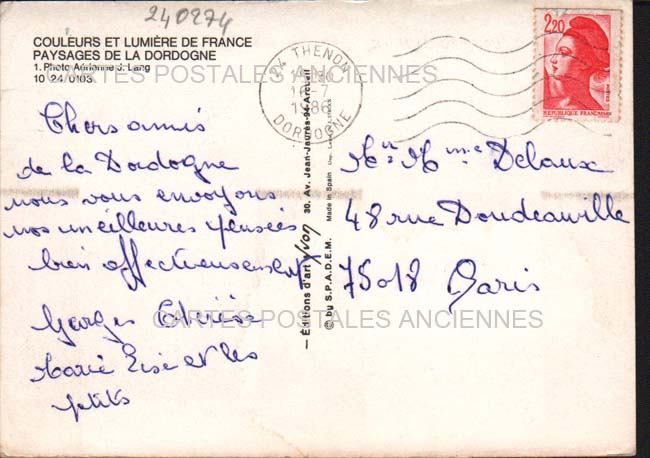 240274
COULEURS ET LUMIÈRE DE FRANCE
PAYSAGES DE LA DORDOGNE
1. Photo Aérienne J. Lang
10 24/0103
CARTES POSTALES ANCIENNES
24 THENON
1986
DORDOGNE
2,20
REPUBLIQUE FRANÇAISE
Chers amis
de la Dordogne
nous vous envoyons
nos meilleures pensées
bien affectueusement
Georges Thérèse
Marie Lise et les
petits
— Éditions d'art YVON 30. Av. Jean-Jaurès-94-Arcueil
© by S.P.A.D.E.M. Made in Spain
Mr. Mme Delaux
48 rue Doudeauville
75018 Paris
CARTES POSTALES ANCIENNES